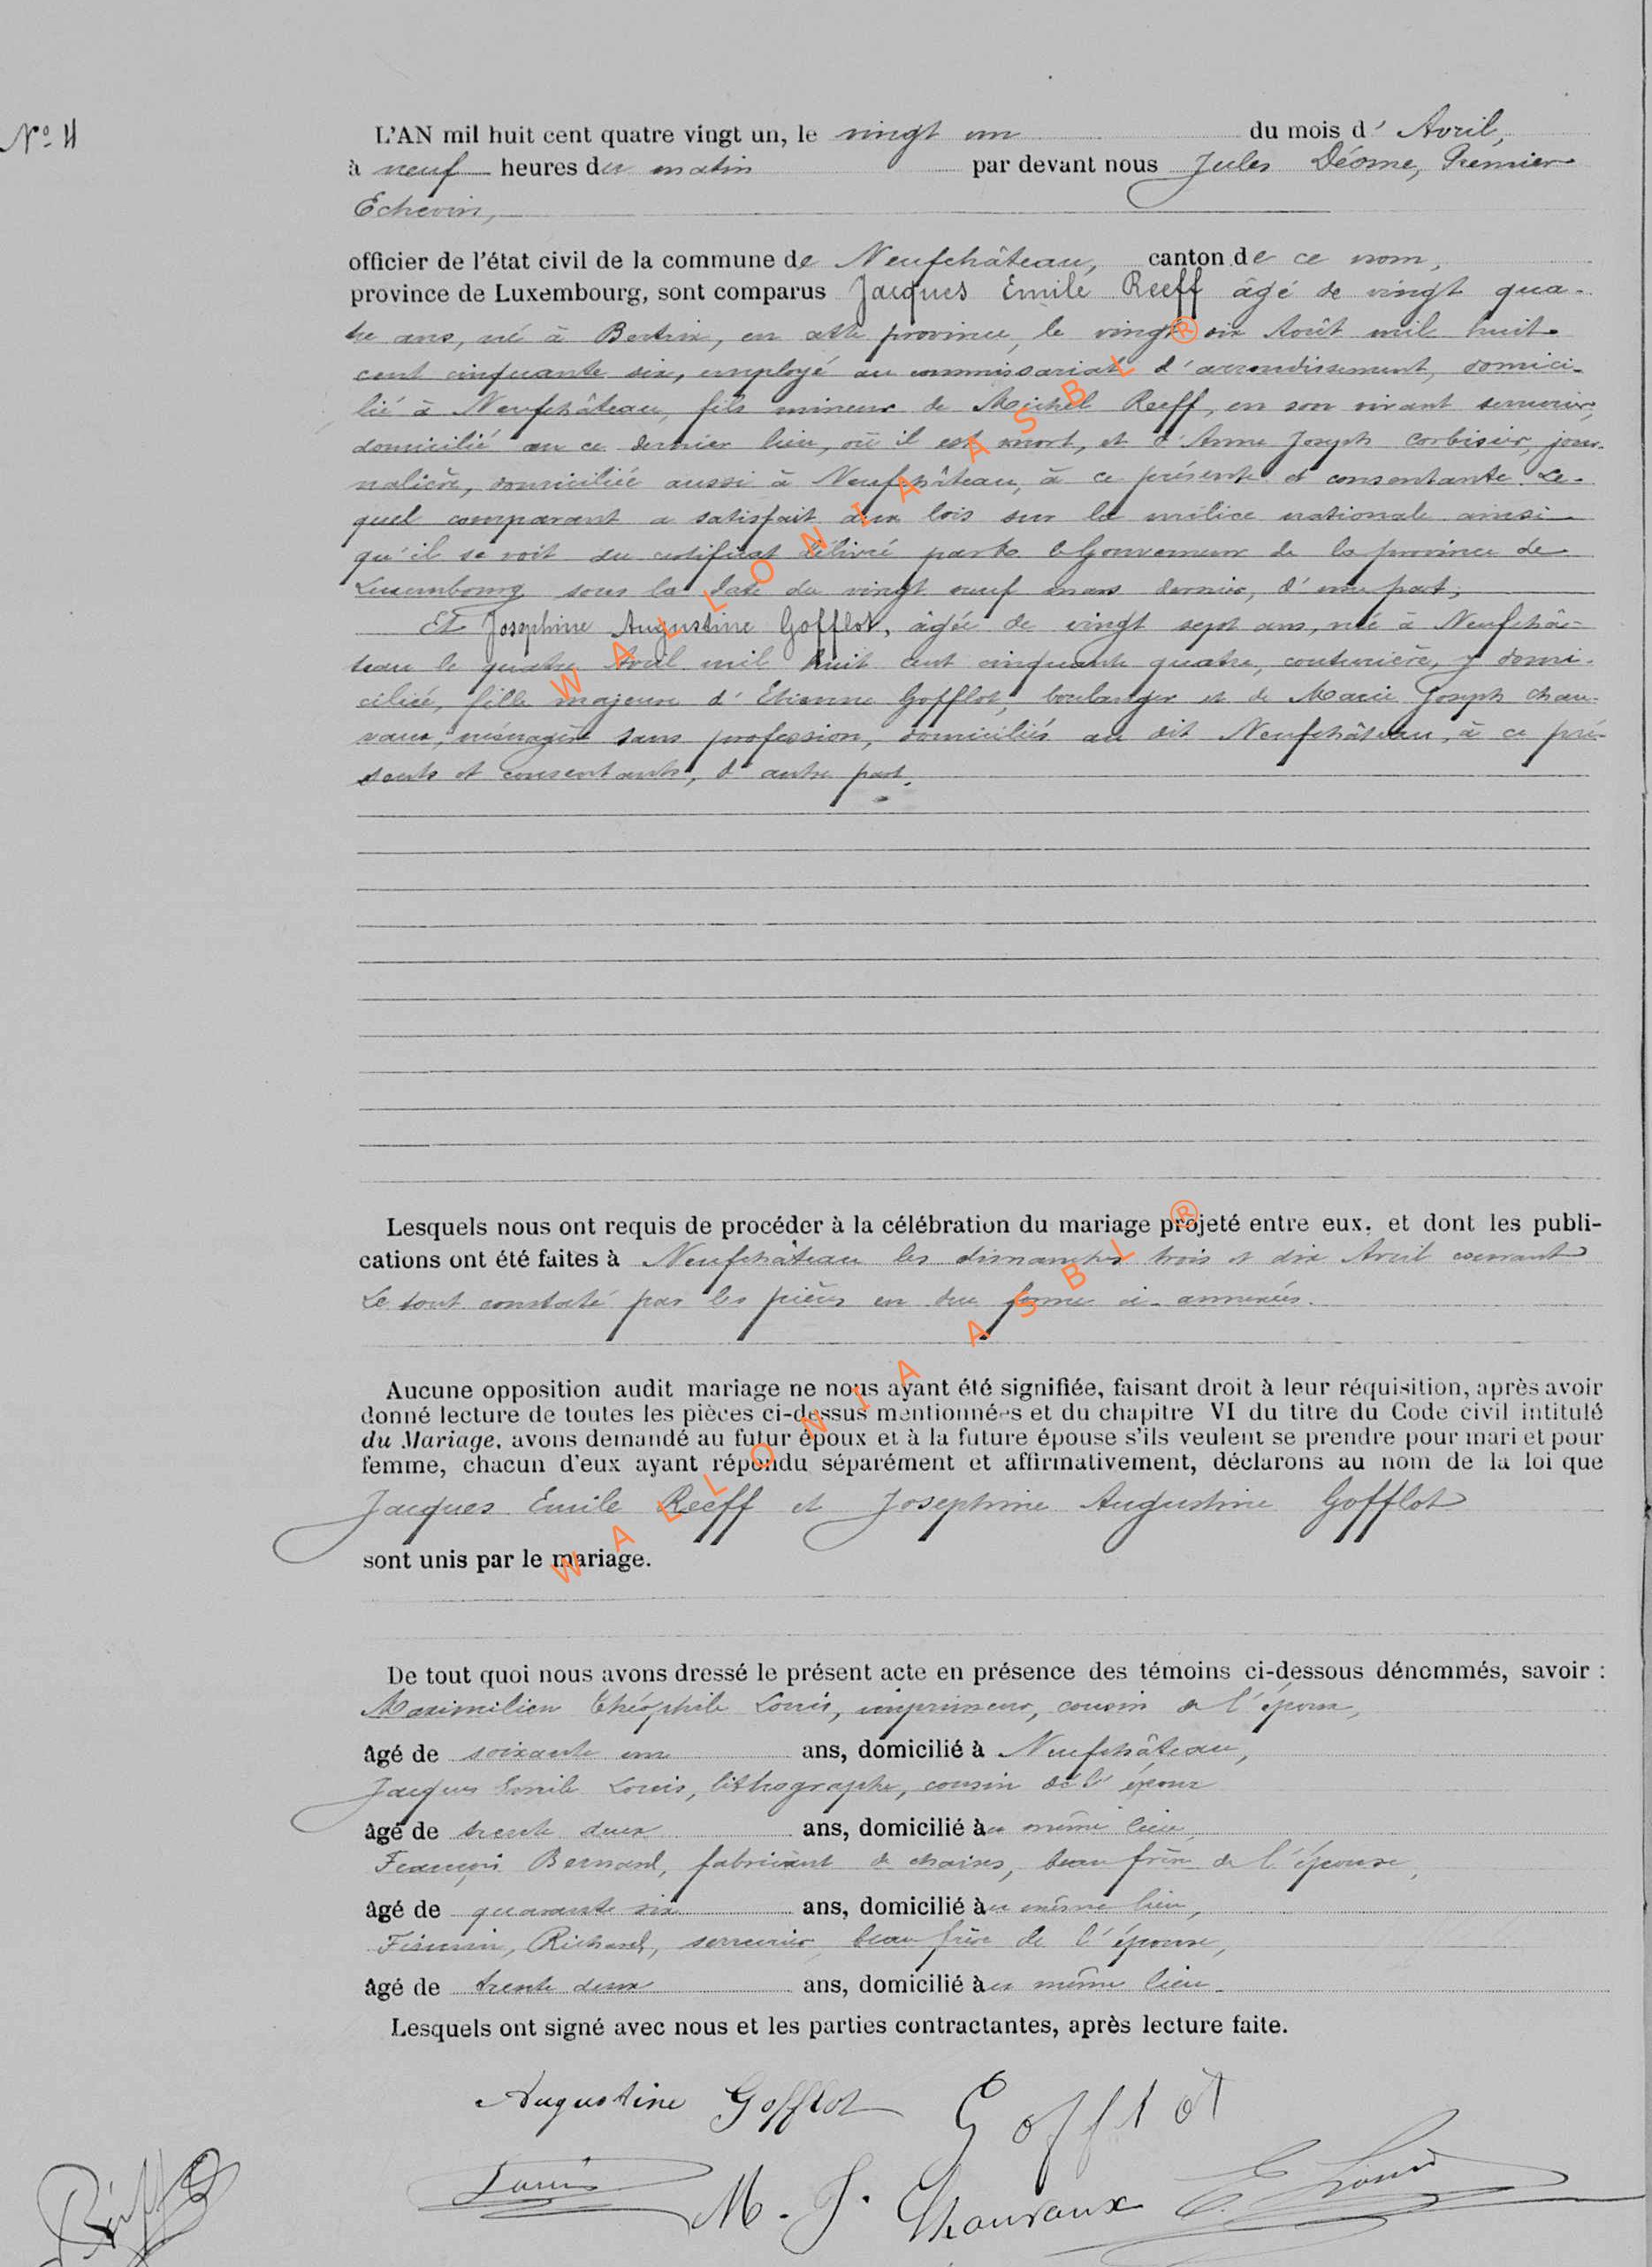 N° 11
L'AN mil huit cent quatre vingt un, le vingt un du mois d' Avril,
à neuf heures du matin par devant nous Jules Déome, Premier
Echevin,
officier de l'état civil de la commune de Neufchâteau, canton de ce nom,
province de Luxembourg, sont comparus Jacques Emile Reeff âgé de vingt qua-
tre ans, né à Bertrix, en cette province, le vingt six Août mil huit
cent cinquante six, employé au commissariat d'arrondissement, domici-
lié à Neufchâteau, fils mineur de Michel Reeff, en son vivant serrurier,
domicilié en ce dernier lieu, où il est mort, et d'Anne Joseph Corbisier, jour-
nalière, domiciliée aussi à Neufchâteau, à ce présente et consentante. Le-
quel comparant a satisfait aux lois sur la milice nationale ainsi
qu'il se voit du certificat délivré par le Gouverneur de la province de
Luxembourg sous la date du vingt neuf mars dernier, d'une part,
Et Josephine Augustine Gofflot, âgée de vingt sept ans, née à Neufchâ-
teau le quatre Avril mil huit cent cinquante quatre, couturière, y domi-
ciliée, fille majeure d'Etienne Gofflot, boulanger et de Marie Joseph Chau-
vaux, ménagère sans profession, domiciliés au dit Neufchâteau, à ce pré-
sents et consentants, d'autre part.
Lesquels nous ont requis de procéder à la célébration du mariage projeté entre eux, et dont les publi-
cations ont été faites à Neufchâteau les dimanches trois et dix Avril courant
Le tout constaté par les pièces en due forme ci-annexées.
Aucune opposition audit mariage ne nous ayant été signifiée, faisant droit à leur réquisition, après avoir
donné lecture de toutes les pièces ci-dessus mentionnées et du chapitre VI du titre du Code civil intitulé
du Mariage, avons demandé au futur époux et à la future épouse s'ils veulent se prendre pour mari et pour
femme, chacun d'eux ayant répondu séparément et affirmativement, déclarons au nom de la loi que
Jacques Emile Reeff et Josephine Augustine Gofflot
sont unis par le mariage.
De tout quoi nous avons dressé le présent acte en présence des témoins ci-dessous dénommés, savoir :
Maximilien Théophile Louis, imprimeur, cousin de l'époux,
âgé de soixante un ans, domicilié à Neufchâteau,
Jacques Emile Louis, lithographe, cousin de l'époux
âgé de trente deux ans, domicilié au même lieu,
François Bernard, fabricant de chaises, beau frère de l'épouse,
âgé de quarante six ans, domicilié au même lieu,
Firmin, Richard, serrurier, beau frère de l'épouse,
âgé de trente deux ans, domicilié au même lieu.
Lesquels ont signé avec nous et les parties contractantes, après lecture faite.
Augustine Gofflot Gofflot
Louis M. J. Chauvaux E. Louis
Reeff
WALLONIA ASBL ®
WALLONIA ASBL ®